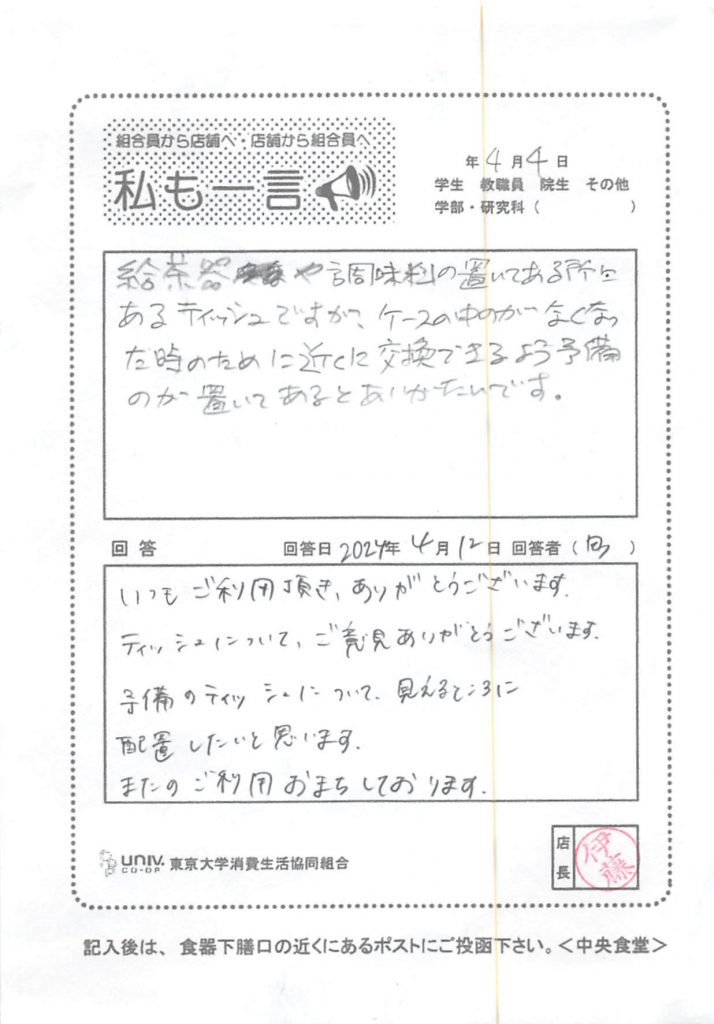 組合員から店舗へ・店舗から組合員へ
私も一言
年 4月 4日
学生 教職員 院生 その他
学部・研究科( )
給茶器や調味料の置いてある所に
あるティッシュですが、ケースの中のが なくなっ
た時のために近くに交換できるよう予備
のが置いてあるとありがたいです。
回答 回答日 2024年 4月 12日 回答者( )
いつもご利用頂き、ありがとうございます。
ティッシュについて、ご意見ありがとうございます。
予備のティッシュについて、見えるところに
配置したいと思います。
またのご利用おまちしております。
UNIV. CO-OP 東京大学消費生活協同組合
店長 伊藤
記入後は、食器下膳口の近くにあるポストにご投函下さい。<中央食堂>